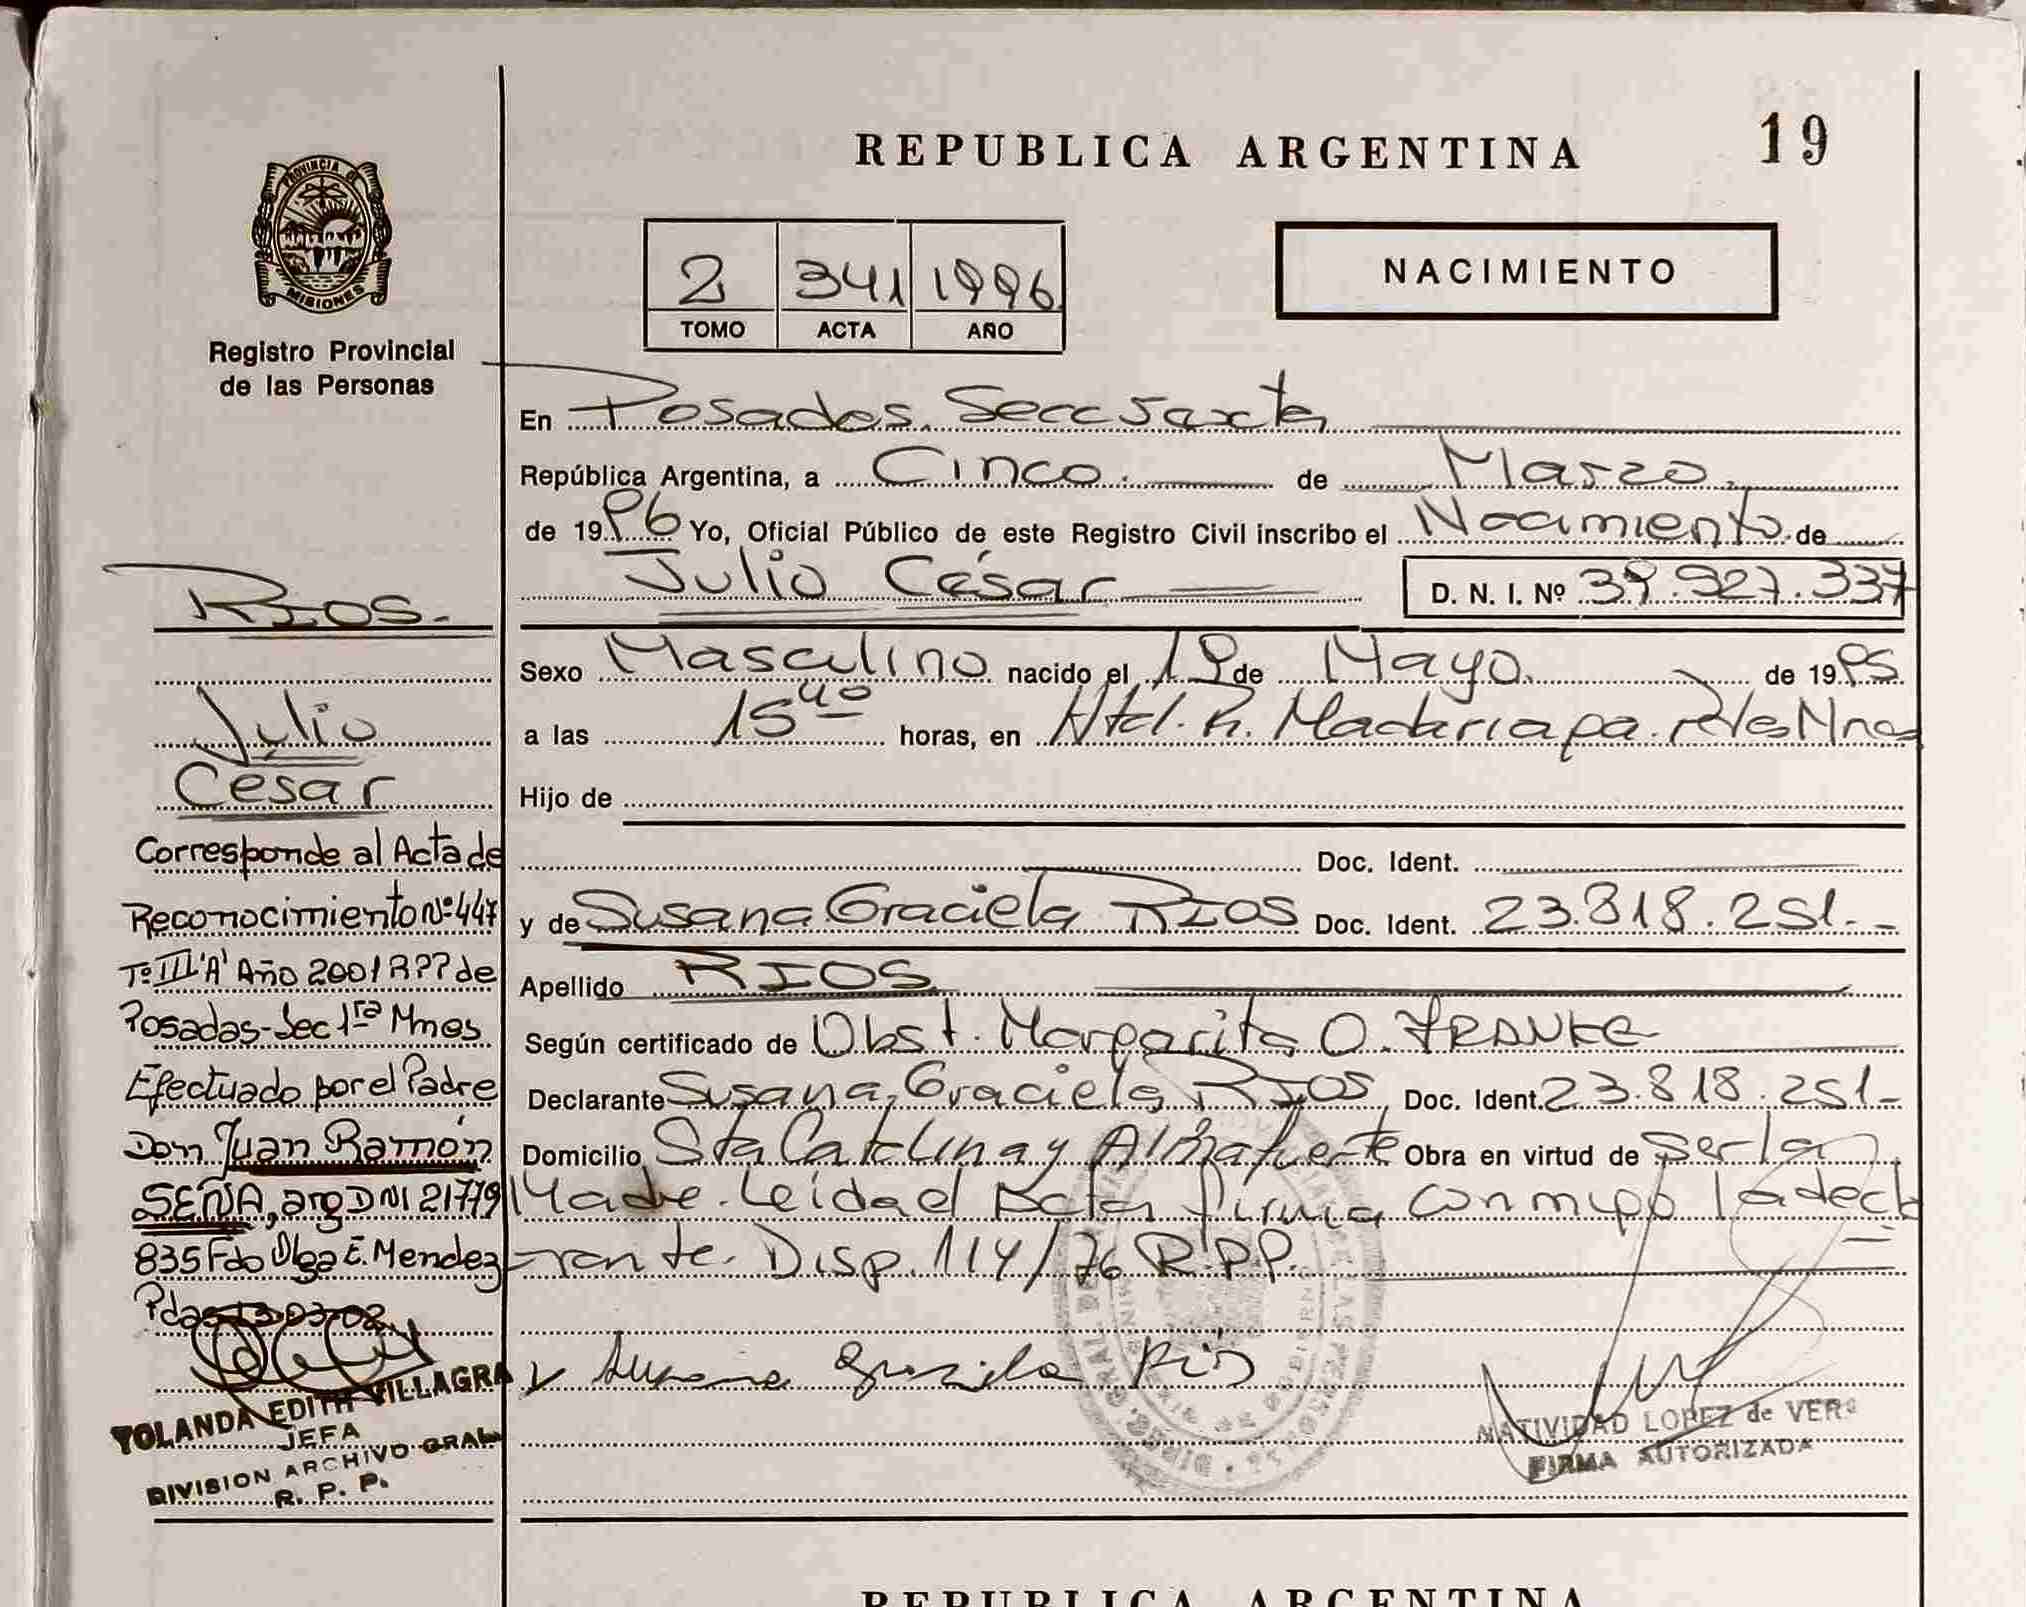 REPUBLICA ARGENTINA
19
PROVINCIA DE
MISIONES
Registro Provincial
de las Personas
2 341 1996
TOMO ACTA AÑO
NACIMIENTO
En Posadas. Secc Sexta
República Argentina, a Cinco. de Marzo
de 1996 Yo, Oficial Público de este Registro Civil inscribo el Nacimiento de
Julio César D. N. I. Nº 39.927.337
Sexo Masculino nacido el 19 de Mayo de 1995
a las 15 40 horas, en Htal. R. Madariaga. Pdas Mnes
Hijo de
Doc. Ident.
y de Susana Graciela RIOS Doc. Ident. 23.818.251.-
Apellido RIOS
Según certificado de Obst. Margarita O. FRANKE
Declarante Susana Graciela RIOS Doc. Ident. 23.818.251-
Domicilio Sta Catalina y Almafuerte Obra en virtud de Ser la
Madre. Leida el Acta firma conmigo la decla
rante. Disp. 114/76 R.P.P.
Susana Graciela Rios
NATIVIDAD LOPEZ de VERA
FIRMA AUTORIZADA
RIOS.
Julio
César
Corresponde al Acta de
Reconocimiento Nº 447
Tº III "A" Año 2001 RPP de
Posadas-Sec 1ra Mnes
Efectuado por el Padre
Don Juan Ramón
SENA, arg DNI 21779
835 Fdo Olga E. Mendez
Pdas 13-03-02
YOLANDA EDITH VILLAGRA
JEFA
DIVISION ARCHIVO GRAL.
R. P. P.
REPUBLICA ARGENTINA